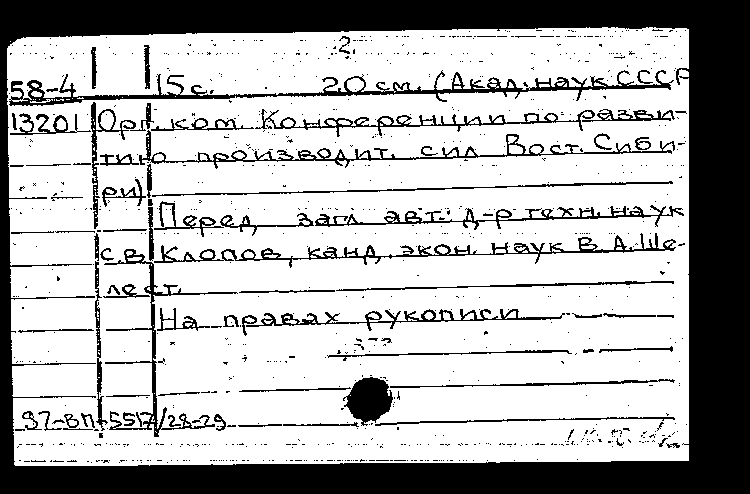 2.
58-4 15 с. 20 см. (Акад. наук СССР
13201 Орг. ком. Конференции по разви-
тию производит. сил Вост. Сиби-
ри)
Перед загл. авт.: д-р техн. наук
С.В. Клопов, канд. экон. наук В.А. Ше-
лест.
На правах рукописи
37-ВП-5517/28-29